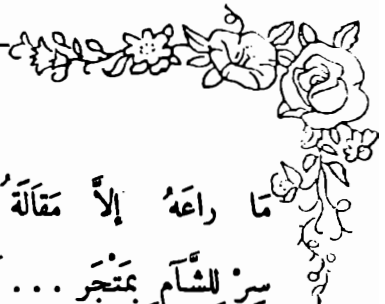 مَا راعَهُ إلاَّ مَقَالَةُ
سِرْ للشَّآمِ بِمَتْجَرٍ ...